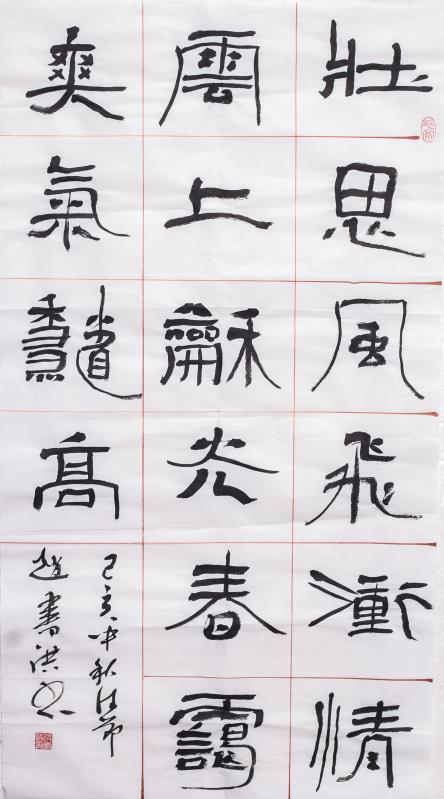 壯思風飛衝情
雲上龢光春靄
爽氣龝高
己亥中秋佳節
趙書洪